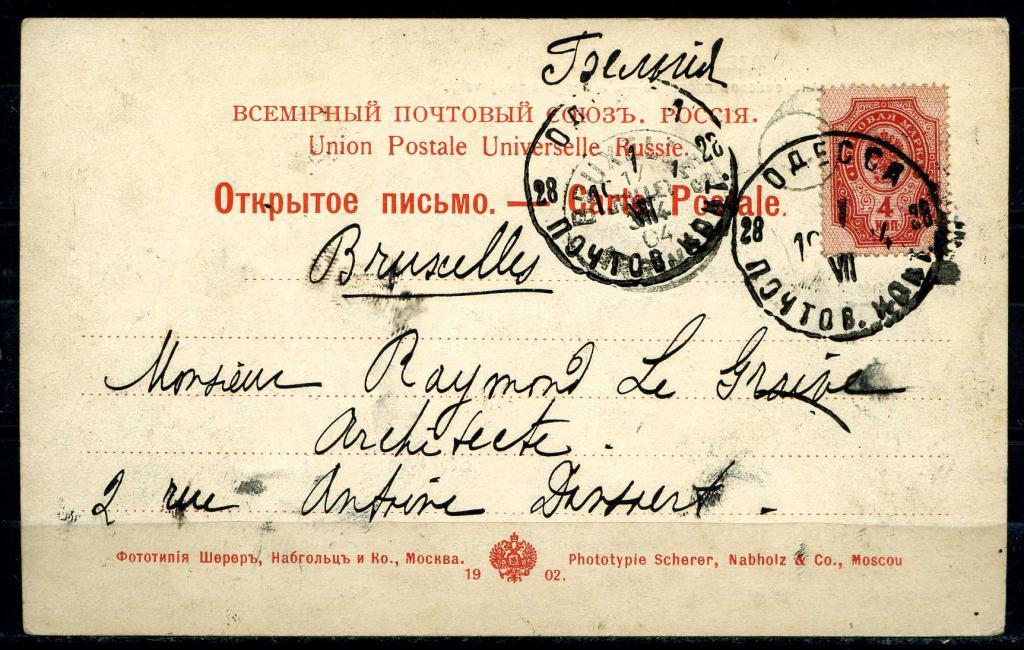 Бельгія
ВСЕМІРНЫЙ ПОЧТОВЫЙ СОЮЗЪ. РОССІЯ.
Union Postale Universelle Russie.
Открытое письмо. — Carte Postale.
ОДЕССА
28 28
1 VII
ПОЧТОВ. КОНТ.
4
Bruxelles
Monsieur Raymond Le Graive
Architecte.
2 rue Antoine Dansaert.
Фототипія Шереръ, Набгольцъ и Ко., Москва. 1902. Phototypie Scherer, Nabholz & Co., Moscou